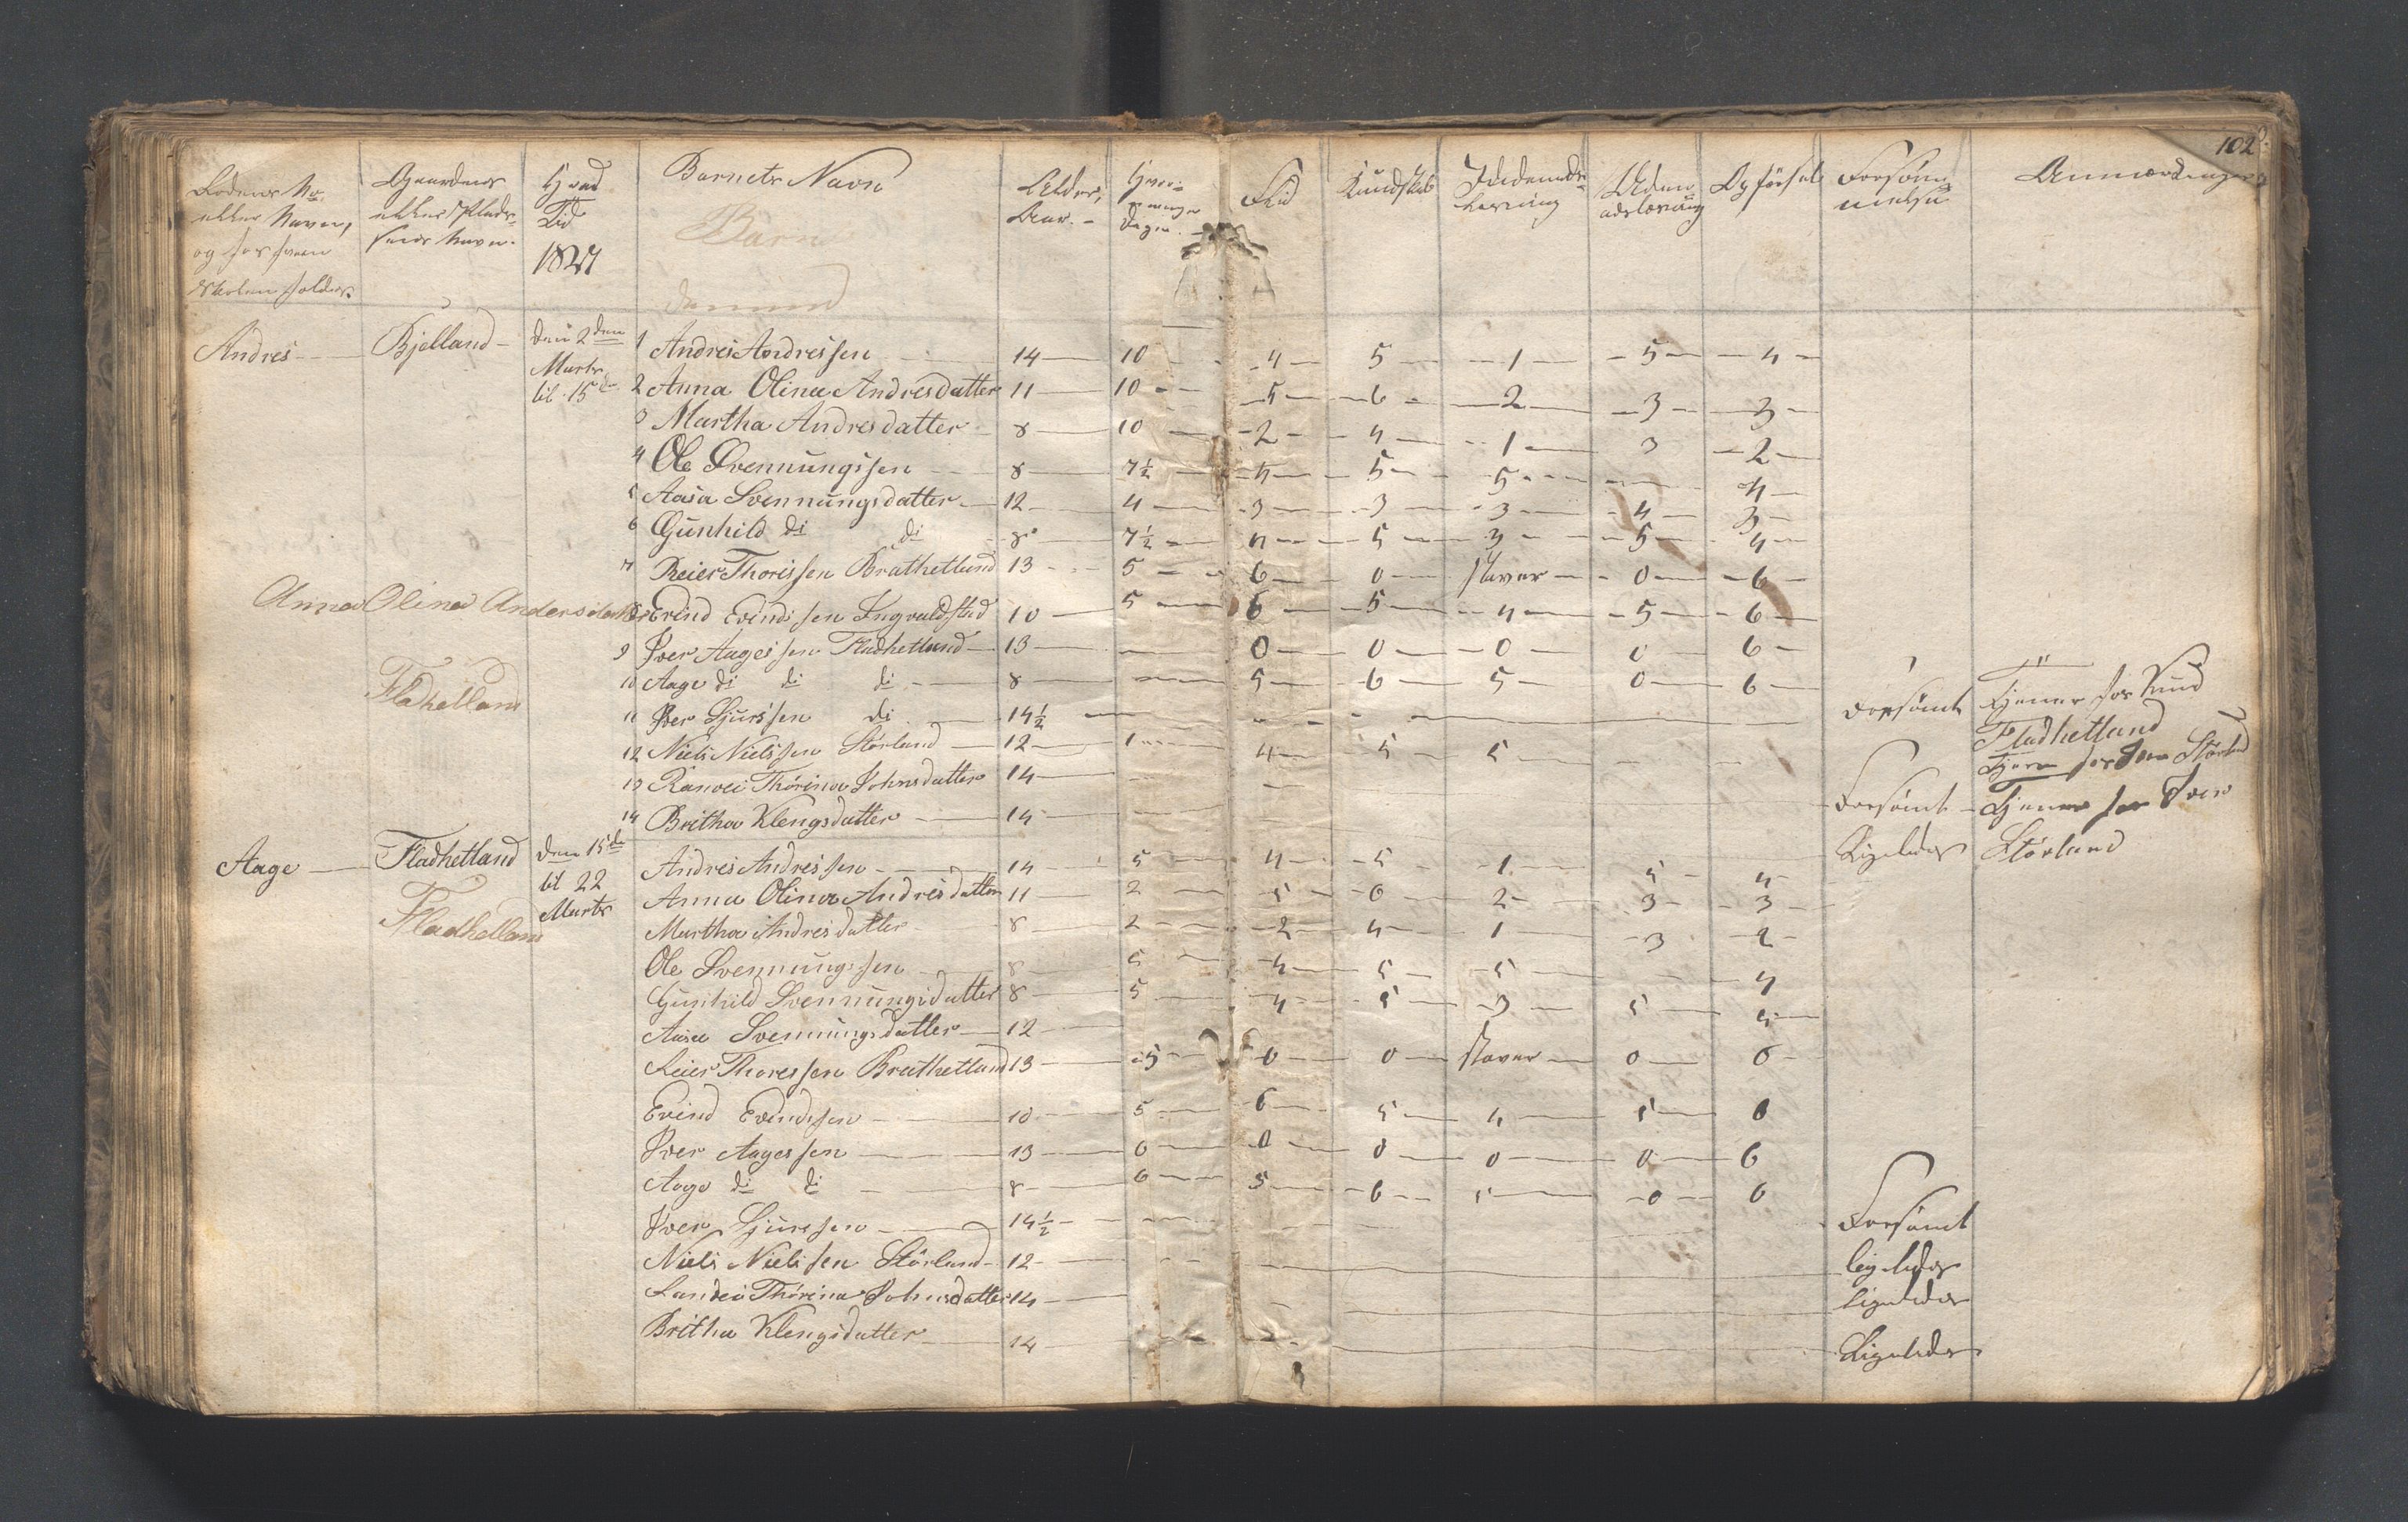 102
Rodens No. eller Navn, og hos hvem Skolen holdes. | Gaardens eller Pladsens Navn. | Hvad Tid 1827 | Barnets Navn | Alder, Aar. | Dage. | Flid | Kundskab | Indenadslæsning | Udenadslæsning | Opførsel | Forsømmelse | Anmærkninger
Barn
Andres — Bjelland — den 2den Marts til 15de
1 Andres Andresen — 14 — 10 — 4 — 5 — 1 — 5 — 4 —
2 Anna Olina Andresdatter 11 — 10 — 5 — 6 — 2 — 3 — 3 —
3 Martha Andresdatter — 8 — 10 — 2 — 4 — 1 — 3 — 2 —
4 Ole Svennungssen — 8 — 7½ — 4 — 5 — 5 — — 4 —
5 Aasa Svennungsdatter — 12 — 4 — 3 — 3 — 3 — 4 — 3 —
6 Gunhild di di — 8 — 7½ — 4 — 5 — 3 — 5 — 4 —
7 Reier Thorissen Brathetland 13 — 5 — 6 — 0 — staver — 0 — 6 —
Anna Olina Andersdatter
8 Evind Evindssen Ingvaldstad 10 — 5 — 6 — 5 — 4 — 5 — 6 —
9 Iver Aagessen Fladhetland — 13 — — 0 — 0 — 0 — 0 — 6 —
Fladhetland
10 Aage di di di — 8 — — 5 — 6 — 5 — 0 — 6 —
11 Iver Sjurssen di — 14½ — — Forsømt Tjener hos Knud Fladhetland
12 Niels Nielssen Störland — 12 — 1 — 4 — 5 — 5 — —
13 Ranvei Thörina Johnsdatter 14 — — Forsømt — Tjener hos Störland
14 Britha Klengsdatter — 14 — — Ligeledes Tjener hos Iver Störland
Aage — Fladhetland den 15de til 22 Marts
Fladhetland
Andres Andressen — 14 — 5 — 4 — 5 — 1 — 5 — 4 —
Anna Olina Andresdatter 11 — 2 — 5 — 6 — 2 — 3 — 3 —
Martha Andresdatter — 8 — 2 — 2 — 4 — 1 — 3 — 2 —
Ole Svennungssen — 8 — 5 — 4 — 5 — 5 — — 4
Gunhild Svennungsdatter 8 — 5 — 4 — 5 — 3 — 5 — 4 —
Aasa Svennungsdatter — 12 —
Reier Thoressen Brathetland 13 — 5 — 0 — 0 — staver — 0 — 6 —
Evind Evindssen — 10 — 5 — 6 — 5 — 4 — 5 — 6
Iver Aagessen — 13 — 6 — 0 — 0 — 0 — 0 — 6
Aage di di — 8 — 6 — 5 — 6 — 5 — 0 — 6
Iver Sjurssen — 14½ — — Forsømt
Niels Nielssen Störland — 12 — — ligeledes
Ranvei Thörina Johnsdatter 14 — — ligeledes
Britha Klengsdatter — 14 — — Ligeledes